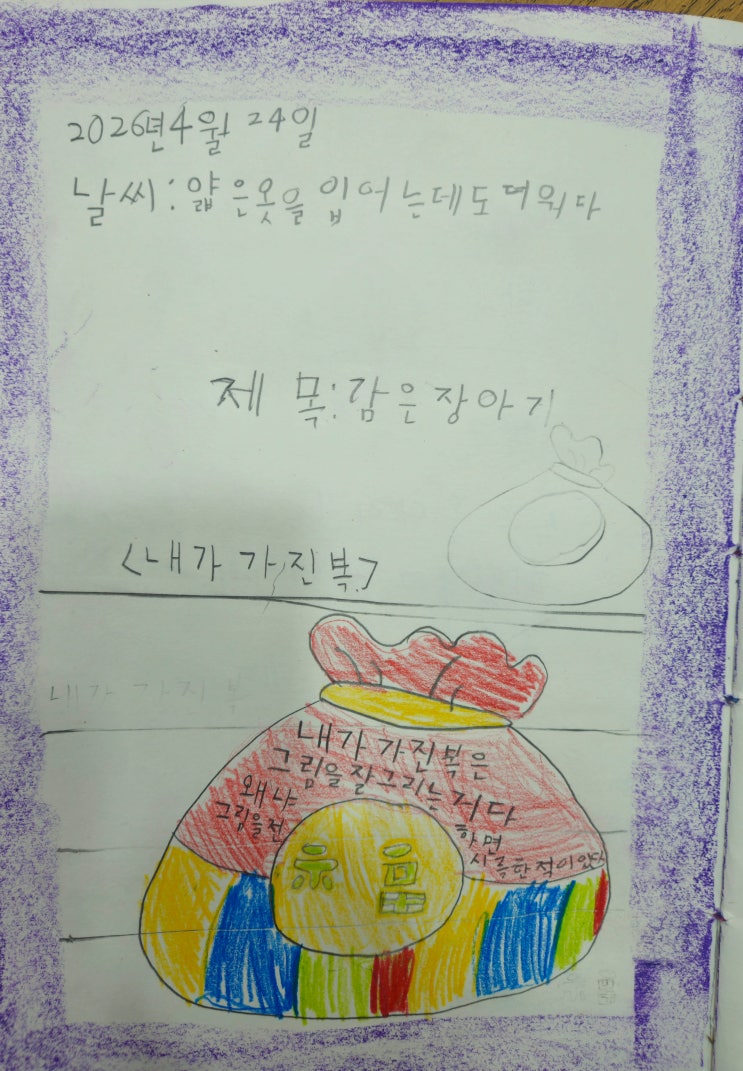 2026년 4월 24일
날씨: 얇은 옷을 입어는데도 더워다
제 목: 감은장아기
<내가 가진 복>
내가 가진 복
내가 가진 복은
그림을 잘 그리는 거다
왜냐
하면
그림을 전
시
한 적이 있다